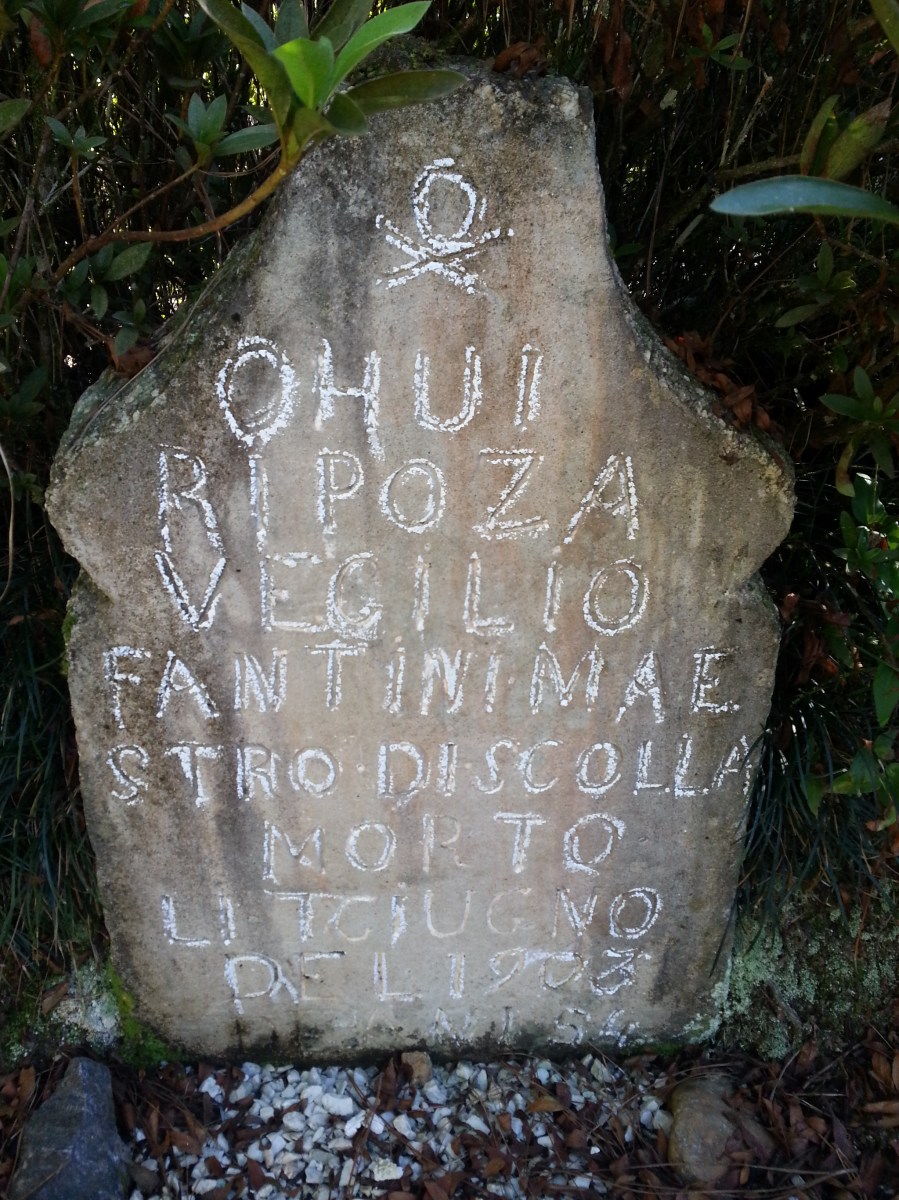 OHUI
RIPOZA
VEGILIO
FANTINIMAE
STRO·DISCOLLA
MORTO
LI 7 GIUGNO
DEL 1903
ANNI 54